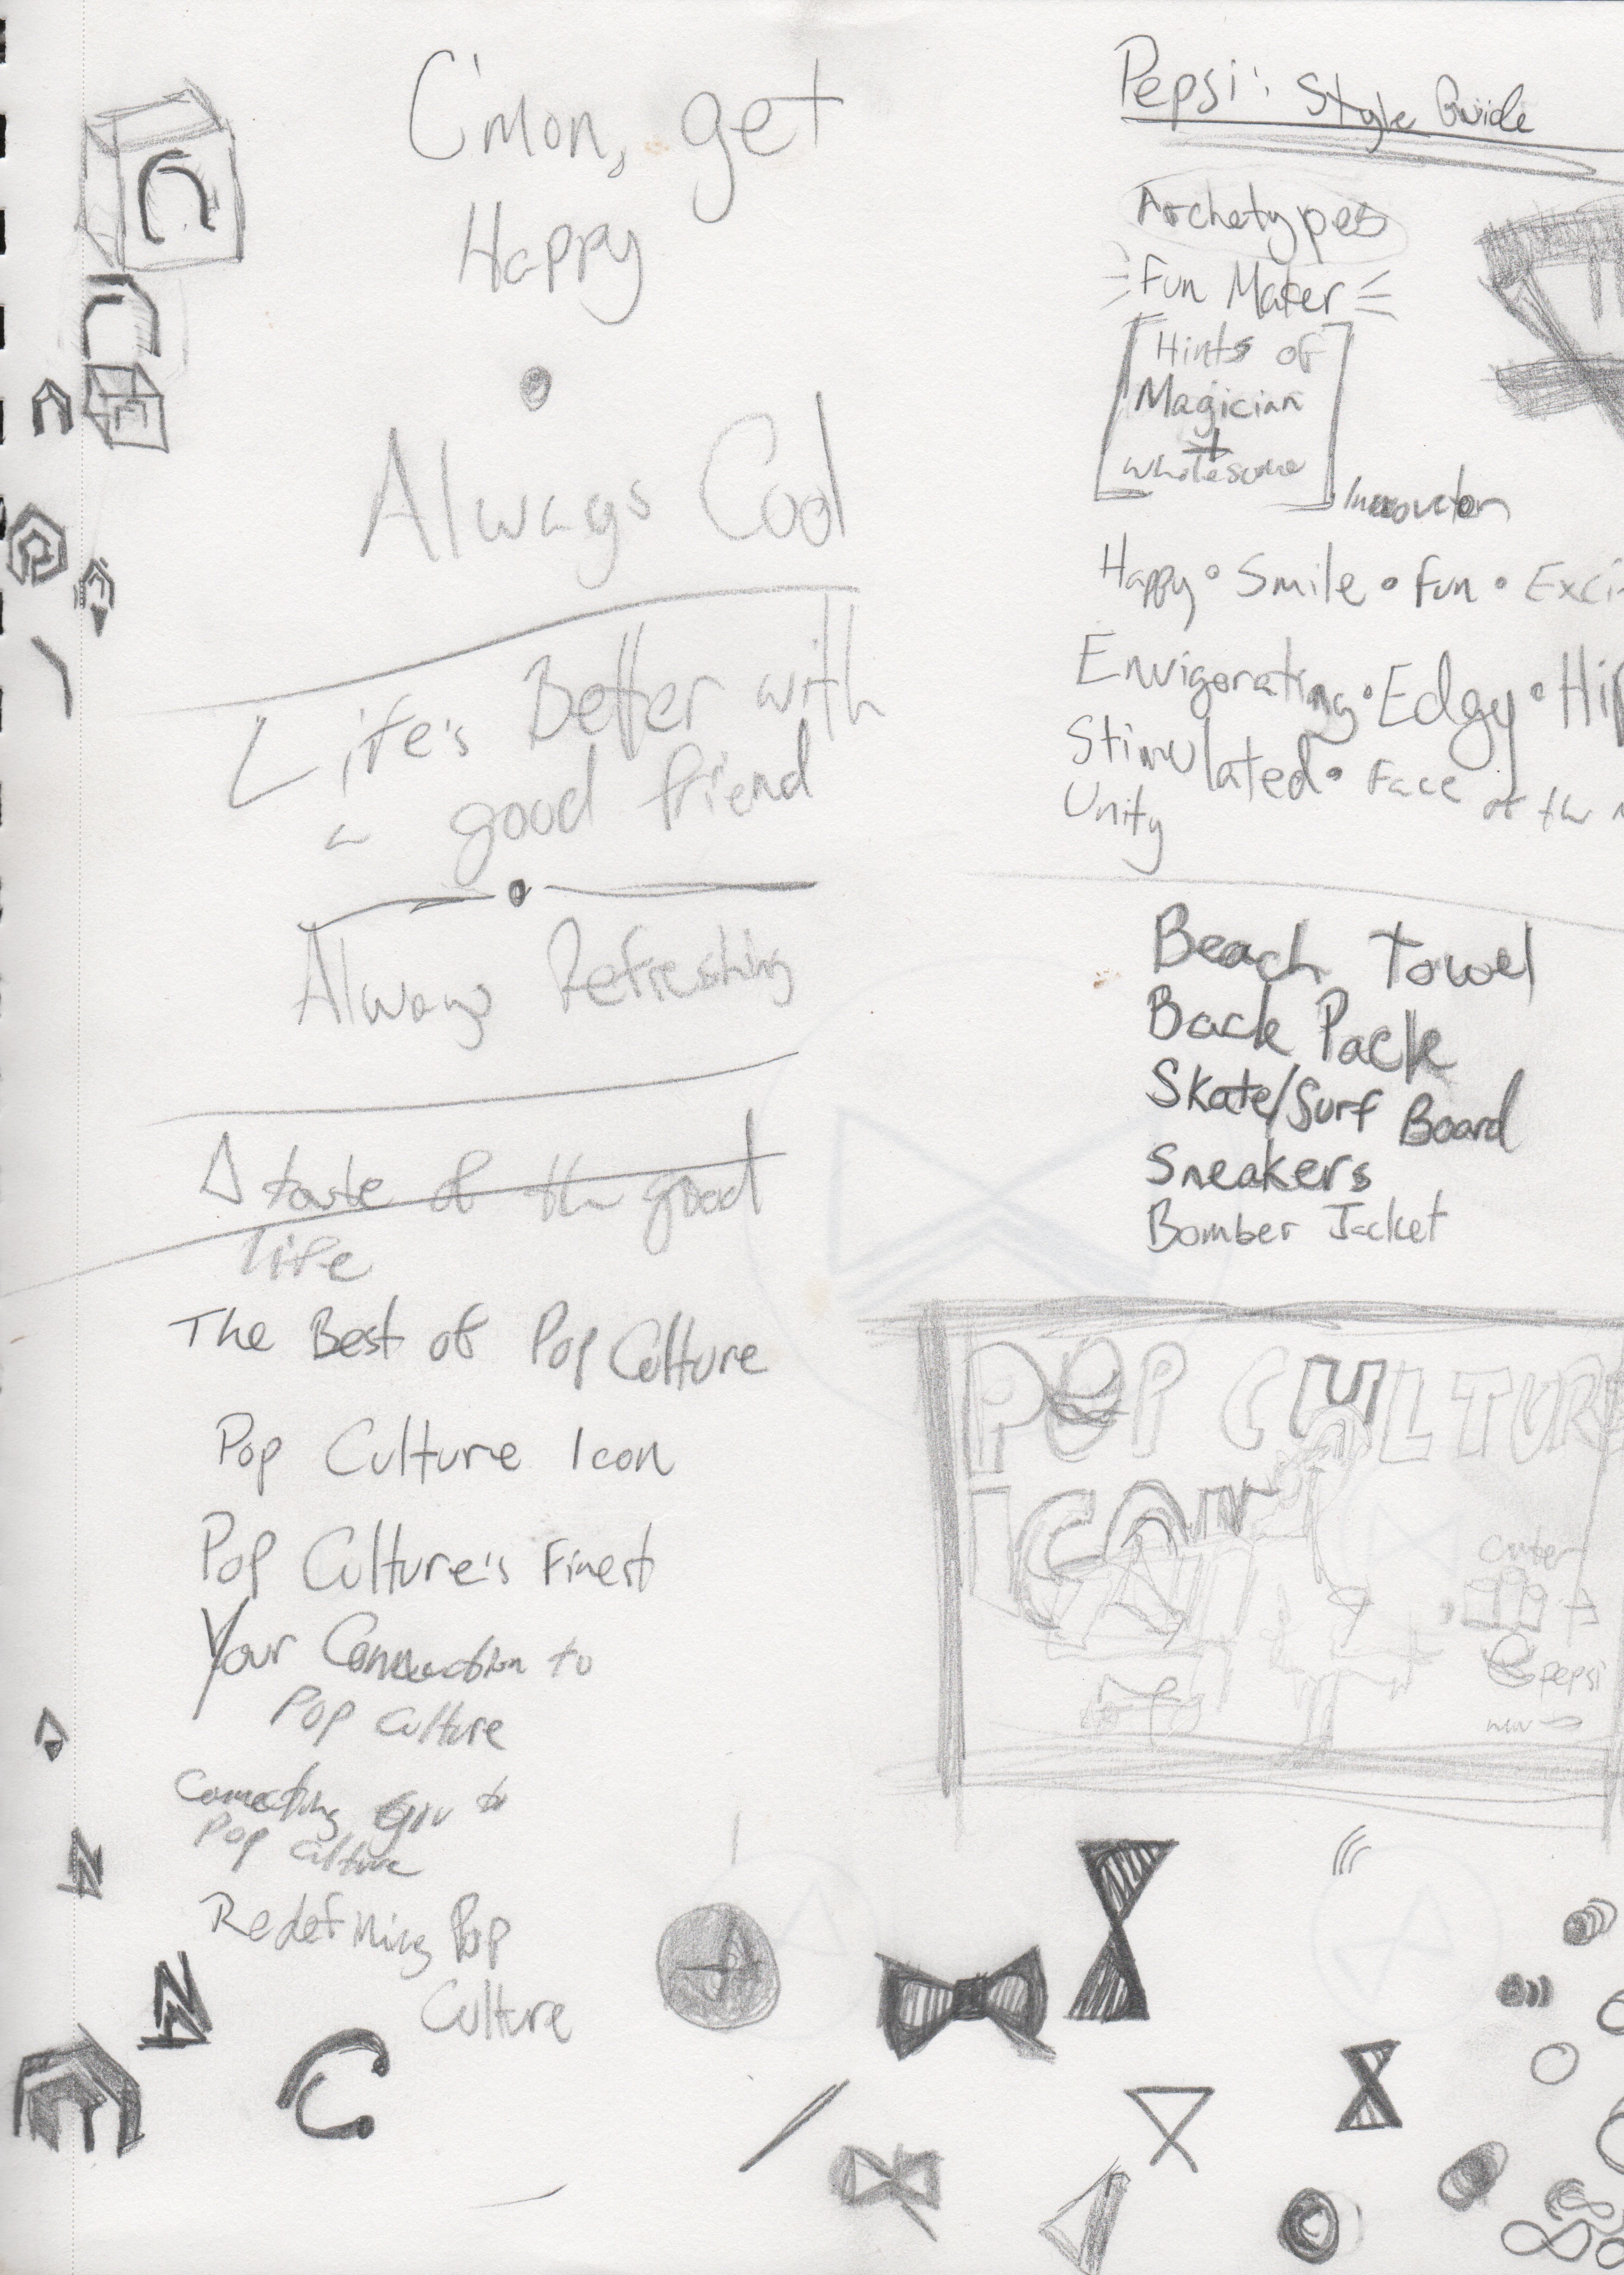 C'mon, get
Happy
Always Cool
Life's Better with
a good friend
Always Refreshing
A taste of the good
life
The Best of Pop Culture
Pop Culture Icon
Pop Culture's Finest
Your Connection to
Pop Culture
Connecting you to
Pop Culture
Redefining Pop
Culture
Pepsi: Style Guide
Archetypes
Fun Maker
Hints of
Magician
+
wholesome
Innovator
Happy • Smile • Fun • Exci
Envigorating • Edgy • Hip
Stimulated • Face of the
Unity
Beach Towel
Back Pack
Skate/Surf Board
Sneakers
Bomber Jacket
POP CULTURE
ICON
pepsi